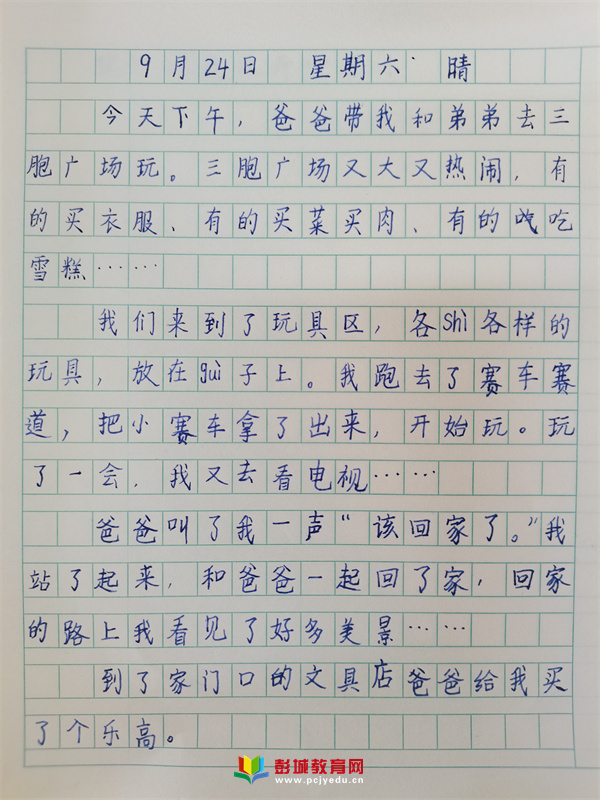 9月24日 星期六 晴
今天下午，爸爸带我和弟弟去三
胞广场玩。三胞广场又大又热闹，有
的买衣服、有的买菜买肉、有的吃
雪糕……
我们来到了玩具区，各Shì各样的
玩具，放在guì子上。我跑去了赛车赛
道，把小赛车拿了出来，开始玩。玩
了一会，我又去看电视……
爸爸叫了我一声“该回家了。”我
站了起来，和爸爸一起回了家，回家
的路上我看见了好多美景……
到了家门口的文具店爸爸给我买
了个乐高。
彭城教育网
www.pcjyedu.cn